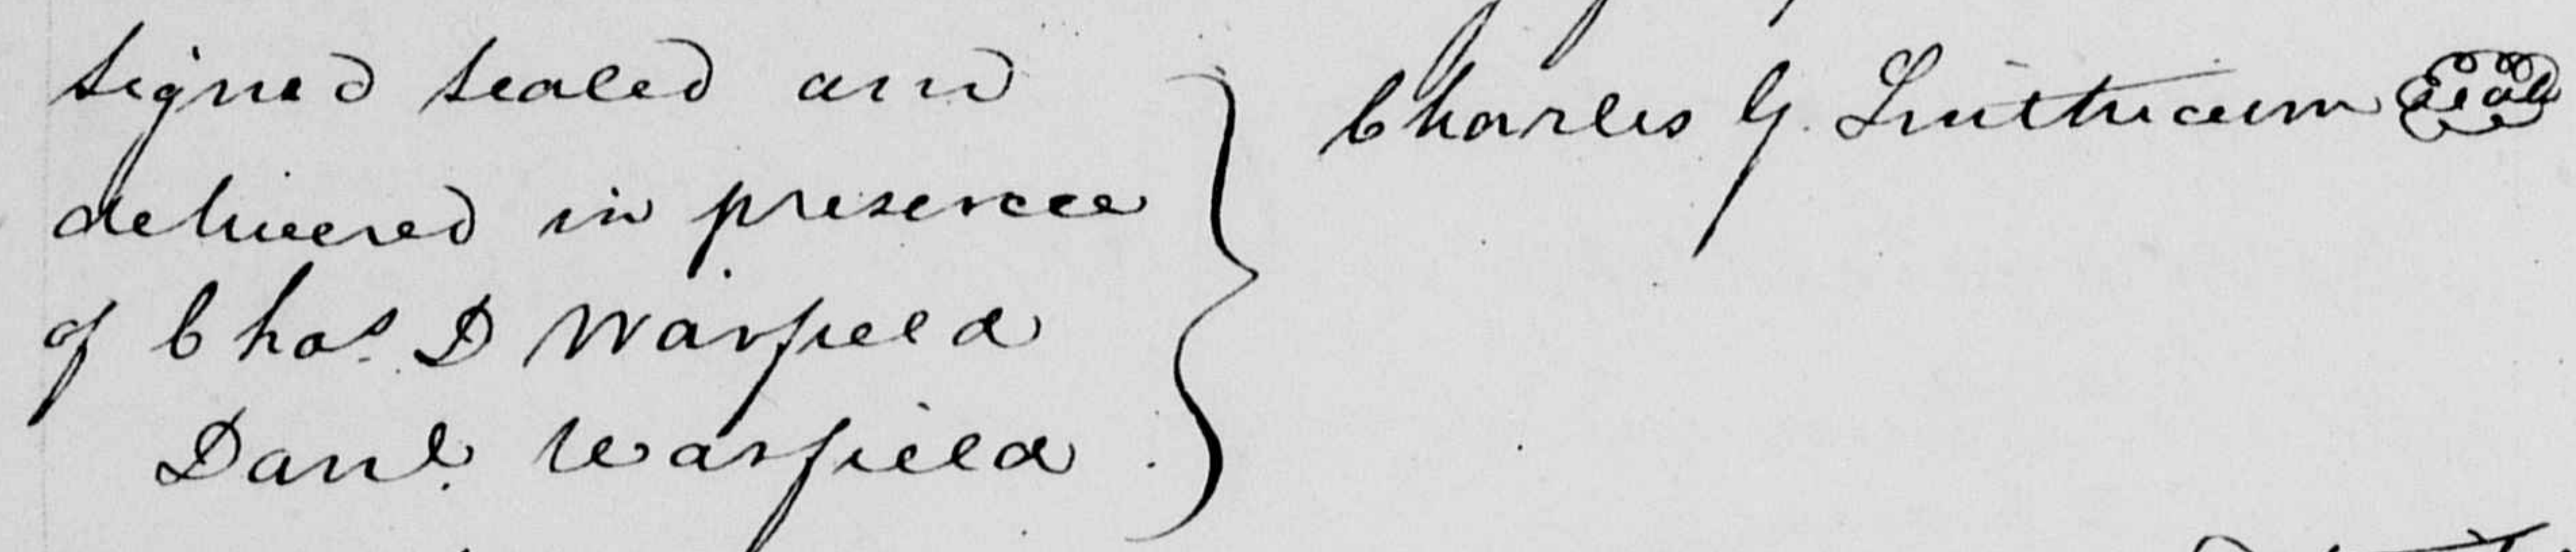 signed sealed and
delivered in presence
of Chas. D Warfield
Danl. Warfield
Charles G. Linthicum Seal